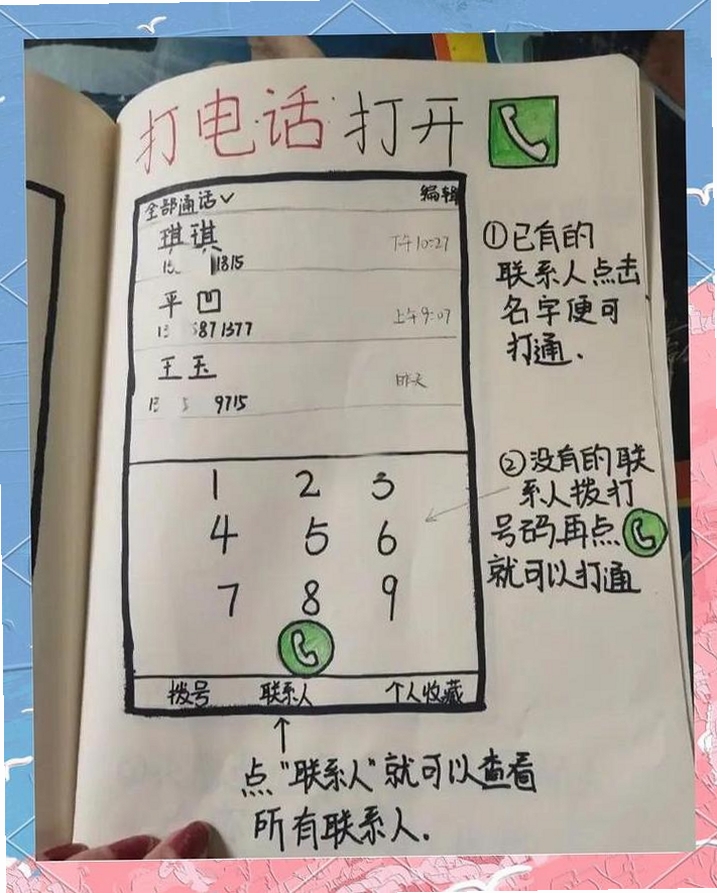 打电话打开
全部通话
编辑
琪琪
下午10:27
1815
平凹
上午9:07
13 6871377
王玉
昨天
13 5 9715
1 2 3
4 5 6
7 8 9
拨号 联系人 个人收藏
①已有的
联系人点击
名字便可
打通.
②没有的联
系人拨打
号码再点
就可以打通
点"联系人"就可以查看
所有联系人.